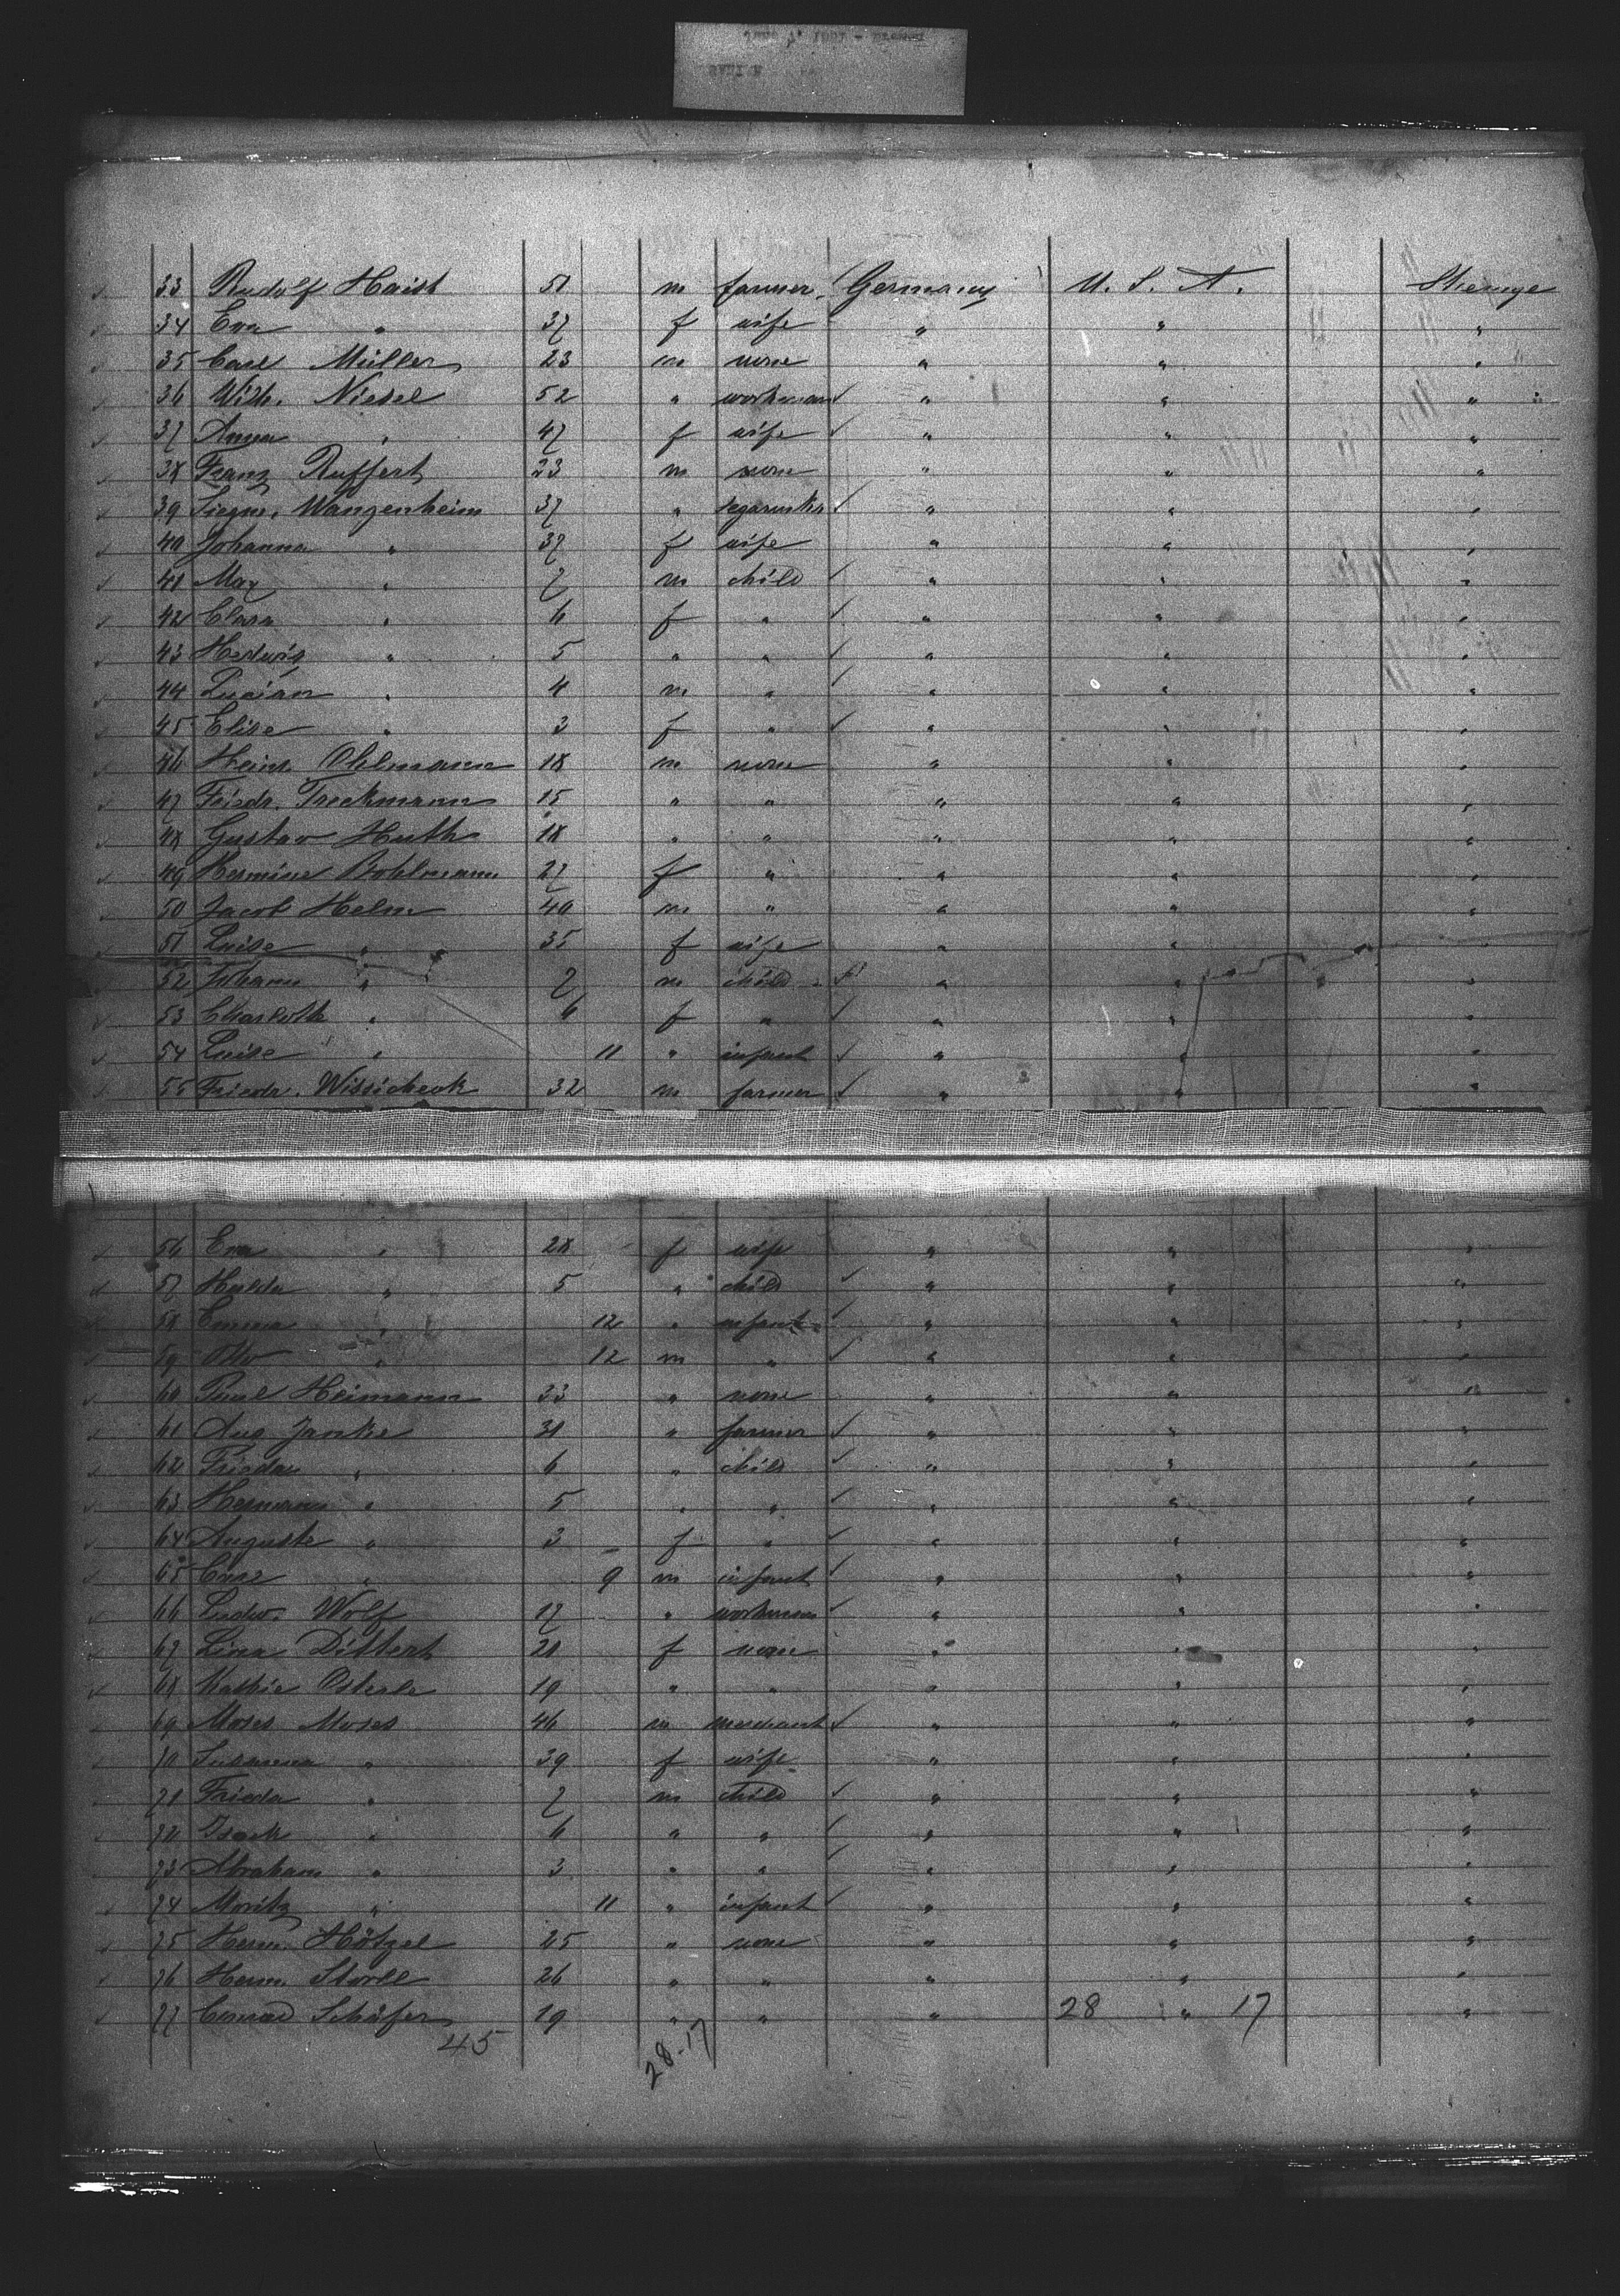 33 Rudolf Haist 51 m farmer Germany U. S. A. Steerage
34 Eva " 37 f wife " " "
35 Carl Müller 23 m none " " "
36 Wilh. Niesel 52 " workman " " "
37 Anna " 47 f wife " " "
38 Franz Ruffert 23 m none " " "
39 Siegm. Wangenheim 37 " segarmkr " " "
40 Johanna " 37 f wife " " "
41 Max " 7 m child " " "
42 Clara " 6 f " " " "
43 Hedwig " 5 " " " " "
44 Lucian " 4 m " " " "
45 Elise " 3 f " " " "
46 Heinr. Ohlmann 18 m none " " "
47 Friedr. Treckmann 15 " " " " "
48 Gustav Huth 18 " " " " "
49 Hermine Bohlmann 27 f " " " "
50 Jacob Helm 40 m " " " "
51 Luise " 35 f wife " " "
52 Johann " 7 m child " " "
53 Charlotte " 6 f " " " "
54 Luise " 11 " infant " " "
55 Friedr. Wissicheck 32 m farmer " " "
56 Eva " 28 f wife " " "
57 Hulda " 5 " child " " "
58 Emma " 12 " infant " " "
59 Otto " 12 m " " " "
60 Paul Heimann 23 " none " " "
61 Aug. Janke 31 " farmer " " "
62 " 6 " child " " "
63 Hermann " 5 " " " " "
64 Auguste " 3 f " " " "
65 " 9 m infant " " "
66 Ludw. Wolf 17 " workman " " "
67 Lina Dittert 20 f none " " "
68 Kathie Osterle 19 " " " " "
69 Moses Moses 46 m merchant " " "
70 Susanna " 39 f wife " " "
71 Frieda " 7 m child " " "
72 Isack " 6 " " " " "
73 Abraham " 3 " " " " "
74 Moritz " 11 " infant " " "
75 Herm. Hötzel 25 " none " " "
76 Herm. Storll 26 " " " " "
77 Conrad Schäfer 19 " " " 28 " 17 "
45 28-17